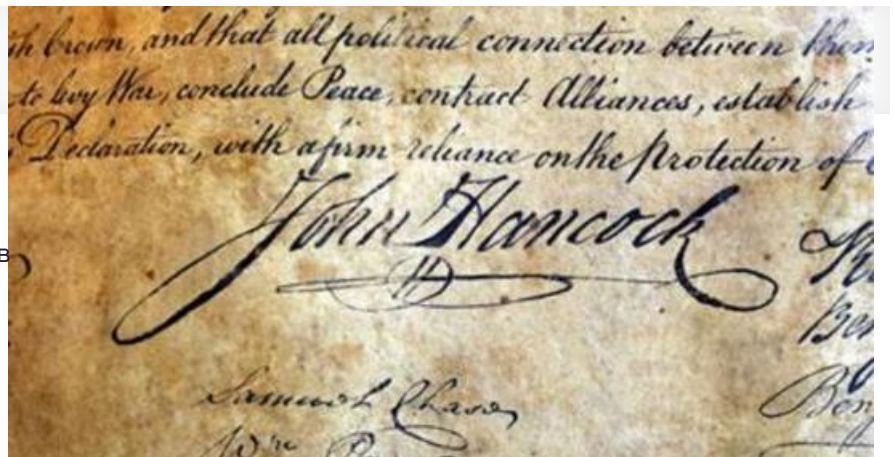 sh Crown, and that all political connection between them
to levy War, conclude Peace, contract Alliances, establish
Declaration, with a firm reliance on the Protection of
John Hancock
B
Ben
Samuel Chase
Benj
Wm